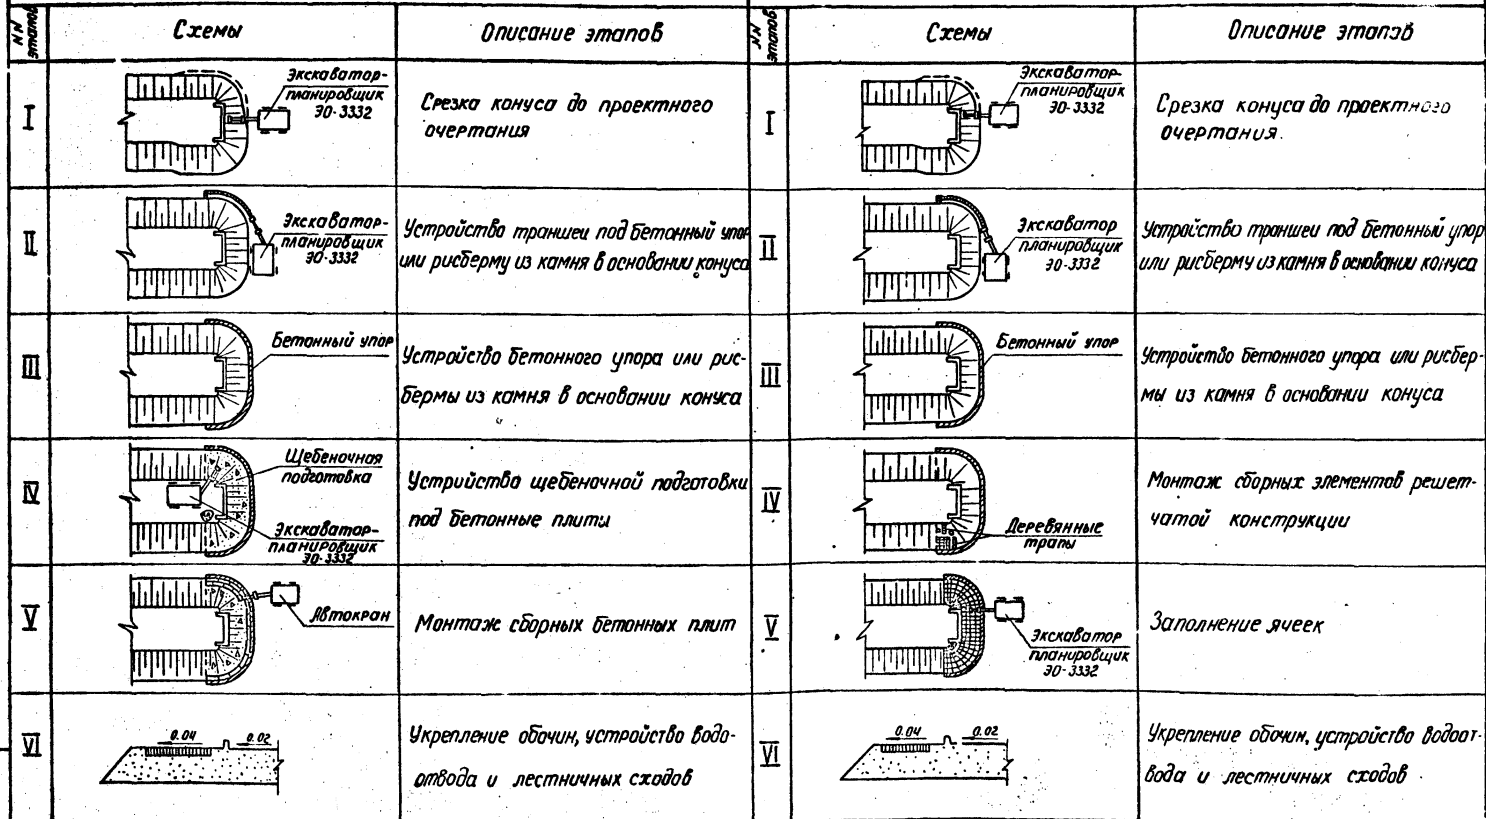 NN этапов
Схемы
Описание этапов
I
Экскаватор-
планировщик
ЭО-3332
Срезка конуса до проектного
очертания
II
Экскаватор-
планировщик
ЭО-3332
Устройство траншеи под бетонный упор
или рисберму из камня в основании конуса
III
Бетонный упор
Устройство бетонного упора или рис-
бермы из камня в основании конуса
IV
Щебеночная
подготовка
Экскаватор-
планировщик
ЭО-3332
Устройство щебеночной подготовки
под бетонные плиты
V
Автокран
Монтаж сборных бетонных плит
VI
0.04
0.02
Укрепление обочин, устройство водо-
отвода и лестничных сходов
NN этапов
Схемы
Описание этапов
I
Экскаватор-
планировщик
ЭО-3332
Срезка конуса до проектного
очертания.
II
Экскаватор
планировщик
ЭО-3332
Устройство траншеи под бетонный упор
или рисберму из камня в основании конуса
III
Бетонный упор
Устройство бетонного упора или рисбер-
мы из камня в основании конуса
IV
Деревянные
трапы
Монтаж сборных элементов решет-
чатой конструкции
V
Экскаватор
планировщик
ЭО-3332
Заполнение ячеек
VI
0.04
0.02
Укрепление обочин, устройство водоот-
вода и лестничных сходов